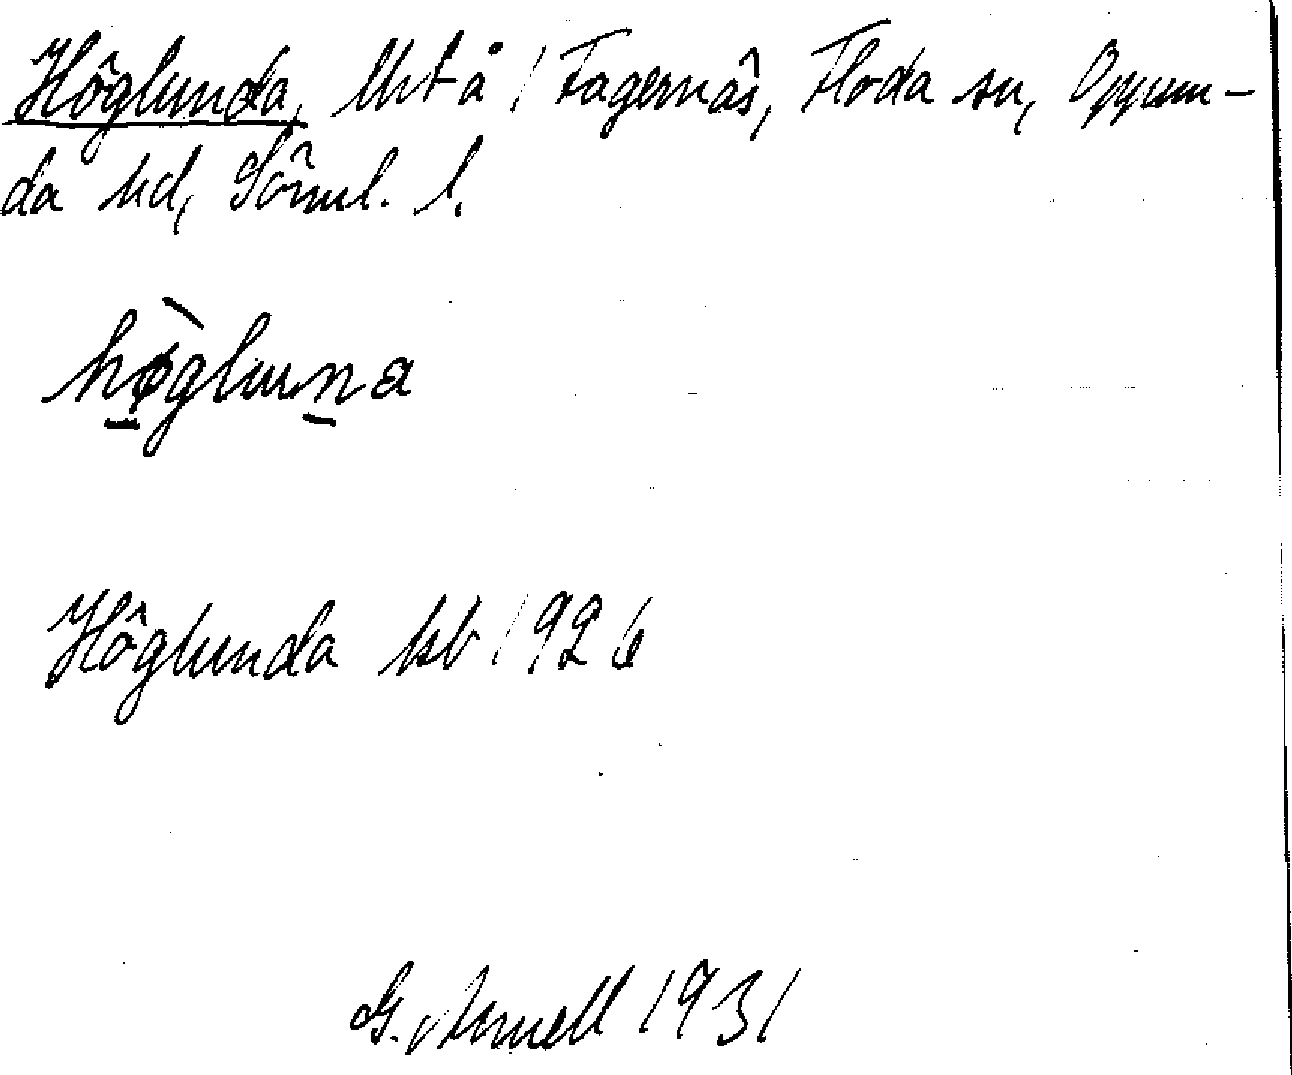 Höglunda, Utå / Fagernäs, Floda sn, Oppun-
da hd, Söml. l.
høgluna
Höglunda kb 1926
G. Arnell 1931